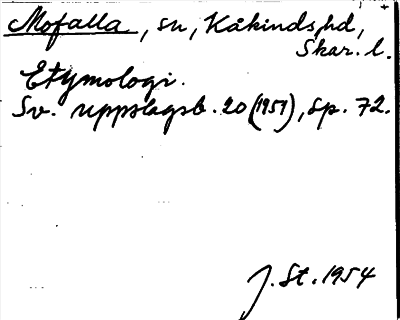 Mofalla, sn, Kåkinds hd,
Skar. l.
Etymologi.
Sv. uppslagsb. 20 (1951), sp. 72.
J. St. 1954